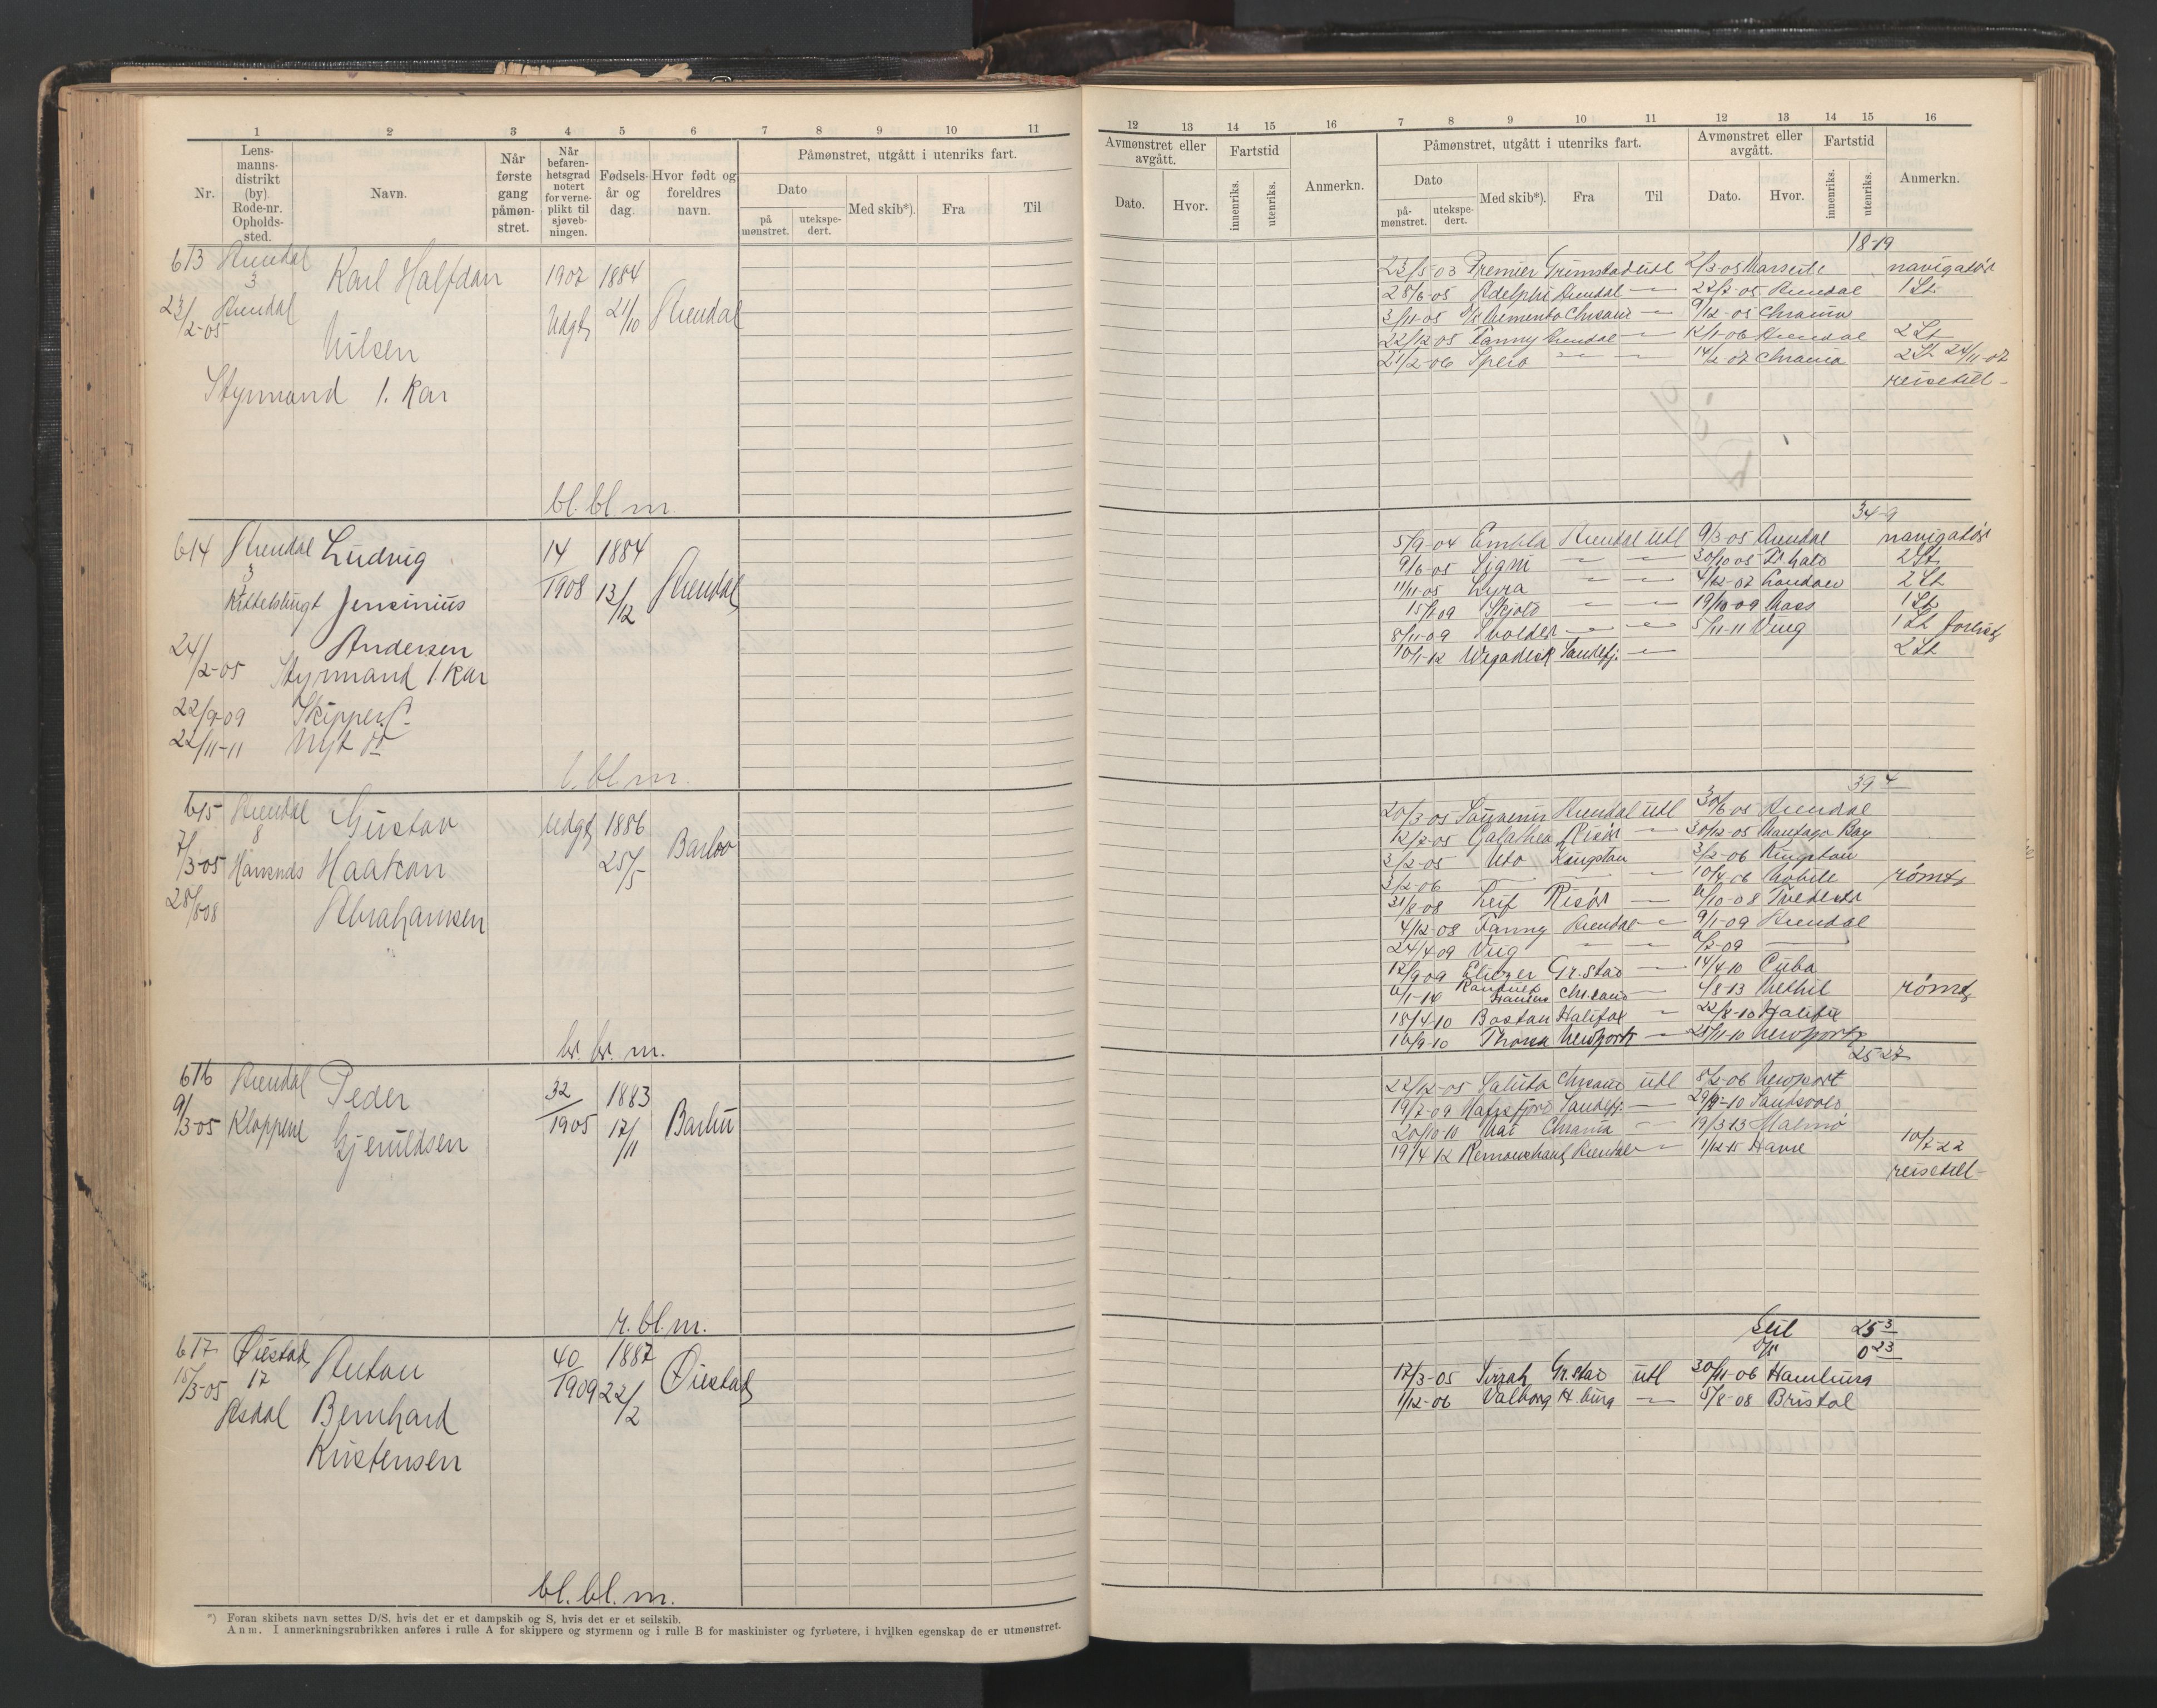 1 2 3 4 5 6 7 8 9 10 11
Nr. Lens-manns-distrikt (by). Rode-nr. Opholds-sted. Navn. Når første gang påmøn-stret. Når befaren-hetsgrad notert for verne-plikt til sjøveb-ningen. Fødsels-år og dag. Hvor født og foreldres navn. Påmønstret, utgått i utenriks fart.
Dato Med skib*). Fra Til
på mønstret. utekspe-dert.
613 Arendal Karl Halfdan 1907 1884
3
23/2-05 Arendal Udgt 21/10 Arendal
Nilsen
Styrmand 1. Kar
bl. bl. m.
614 Arendal Ludvig 14 1884
3
Kittelsbugt Jensinius 1908 13/12 Arendal
24/2-05 Andersen
Styrmand 1. Kar
22/9-09 Skipper
22/11-11 Nyt do
b. bl. m.
615 Arendal Gustav Udgt 1886
7/3-05 8 25/5 Barbo
Haakon
28/8-08
Abrahamsen
br. br. m.
616 Arendal Peder 32 1883
9/3-05 Kloppene Gjeruldsen 1905 17/11 Barbu
r. bl. m.
617 Øiestad Anton 40 1887
15/3-05 17 1909 22/2 Øiestad
Asdal Bernhard
Kristensen
bl. bl. m.
*) Foran skibets navn settes D/S. hvis det er et dampskib og S, hvis det er et seilskib.
Anm. I anmerkningsrubrikken anføres i rulle A for skippere og styrmenn og i rulle B for maskinister og fyrbøtere, i hvilken egenskap de er utmønstret.
12 13 14 15 16 7 8 9 10 11 12 13 14 15 16
Avmønstret eller avgått. Fartstid Anmerkn. Påmønstret, utgått i utenriks fart. Avmønstret eller avgått. Fartstid Anmerkn.
Dato. Hvor. innenriks. utenriks. Dato Med skib*). Fra Til Dato. Hvor. innenriks. utenriks.
på-mønstret. utekspe-dert.
18-19
23/5-03 Premier Grimstad utl 2/3-05 Marseile navigatør
28/6-05 Adelphi Arendal — 22/7-05 Arendal 1 St.
3/11-05 Memento Chrsand — 9/12-05 Chrania
22/12-05 Fanny Arendal — 12/1-06 Arendal 2 St
21/2-06 Spero — — 14/2-07 Chrania 2 St 24/11-07
reisetill-
34-9
5/9-04 Embla Arendal utl 9/3-05 Arendal navigatør
9/6-05 Signi — — 30/10-05 St Malo 2 St.
11/11-05 Lyra — — 4/12-07 London 2 St
15/1-09 Skjold — — 19/10-09 Moss 1 St
8/11-09 Svolder — — 5/11-11 Vlieg 1 St forlist
10/1-12 Sandefj. — 2 St
39 4
20/3-05 Souvenir Arendal utl 30/6-05 Arendal
12/7-05 Galathea Risør — 30/12-05 Montego Bay
3/2-05 Uto Kingston 3/2-06 Kingston
3/2-06 — — — 10/4-06 Mobile rømt
31/8-08 Leif Risør — 6/10-08 Tvedestr
4/12-08 Fanny Arendal — 9/1-09 Arendal
24/4-09 Viig — — 6/7-09 —
12/9-09 Eliezer Gr.stad — 14/4-10 Cuba
6/1-14 Chr.sand — 4/8-13 Methil rømt
18/4-10 Boston Halifax — 22/8-10 Halifax
16/9-10 Thorsa Newport — 25/11-10 Newport
25-27
22/12-05 Saluta Chrsand utl 8/2-06 Newport
19/7-09 Hafrsfjord Sandefj. — 29/9-10 Sandsvold
20/10-10 Mai Chrania — 19/3-13 Malmø
19/4-12 Remonchant Arendal — 1/12-15 Havre 10/7-22
reisetill-
Seil 25 3
D/S 0 23
17/3-05 Sirrah Gr.stad utl 30/11-06 Hamburg
1/12-06 Valborg H.burg — 5/8-08 Bristol